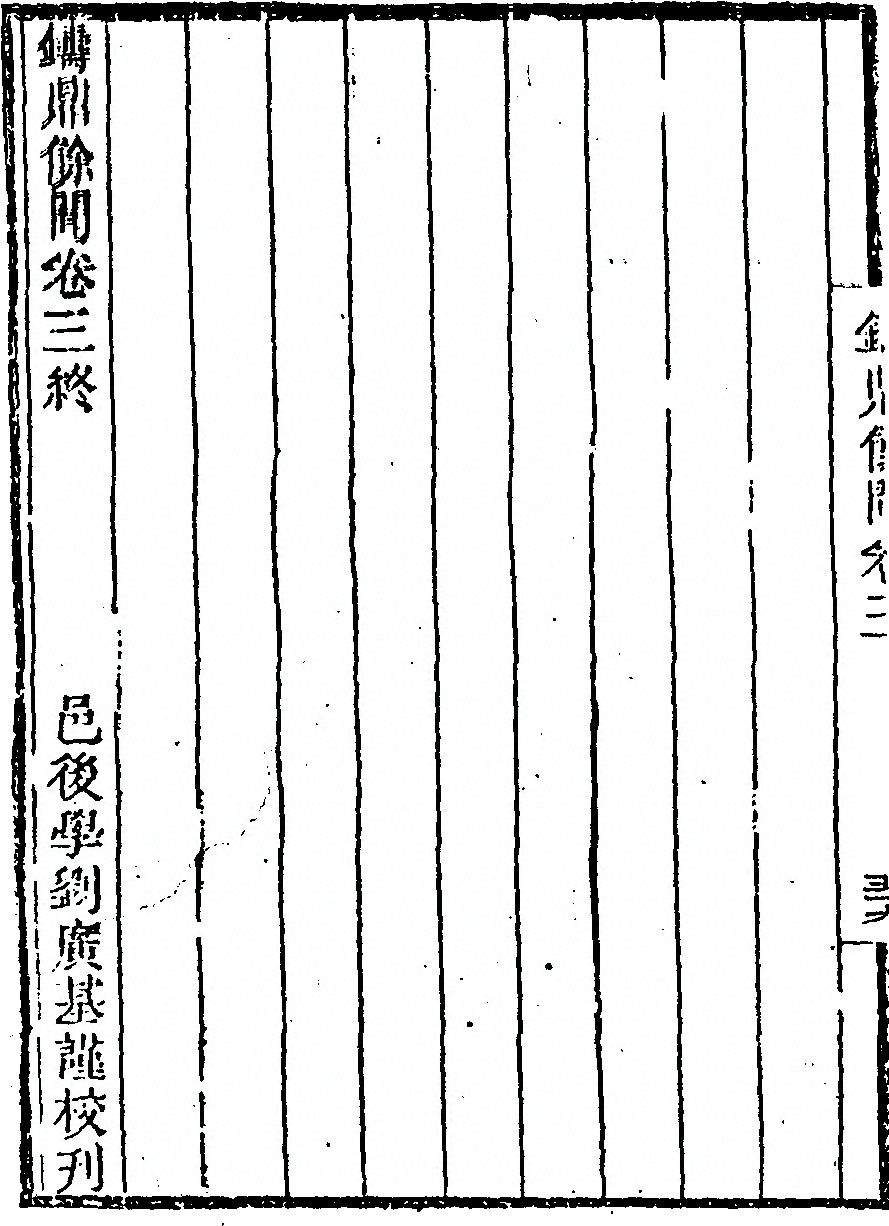 鑄鼎餘聞卷三
鑄鼎餘聞卷三終
邑後學劉廣基謹校刊